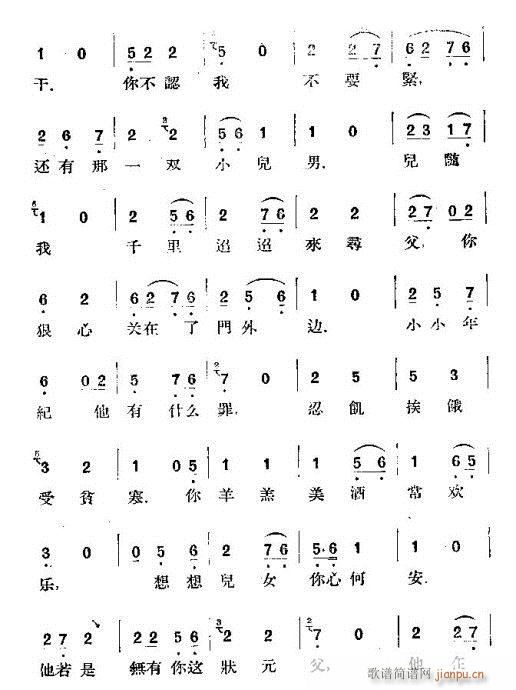 1 0 | 5 2 2 | 5 0 | 2 2 7 | 6 2 7 6 |
干. 你不認 我 不要 緊,
2 6 7 | 2 2 | 5 6 1 | 1 0 | 2 3 1 7 |
还有那 一双 小兒 男. 兒隨
1 0 | 2 5 6 | 2 7 6 | 2 2 | 2 7 0 2 |
我 千里 迢迢 來尋 父, 你
6 2 | 6 2 7 6 | 2 5 6 | 1 0 | 2 5 7 |
狠心 关在了 門外 边. 小小年
6 0 2 | 5 7 6 | 7 0 | 2 5 | 5 3 |
紀 他 有什么 罪, 忍飢 挨餓
3 2 | 1 0 5 | 1 1 | 1 5 6 | 1 6 5 |
受貧 寒. 你 羊羔 美酒 常欢
3 0 | 5 5 6 | 2 7 6 | 5·6 1 | 1 0 |
乐, 想想 兒女 你心何 安.
2 7 2 | 2 7 6 5 | 2 2 | 7 0 | 2 2 7 |
他若是 無有你这 狀元 父, 他在
歌谱简谱网
jianpu.cn